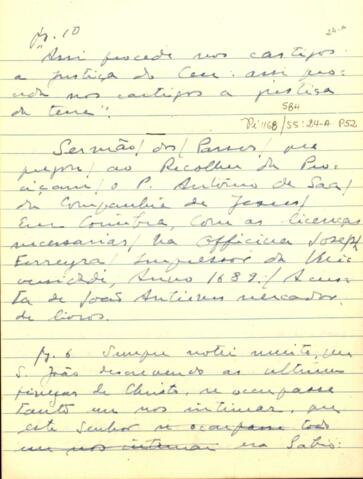 pg. 10
24-A
"Assi procede nos castigos
a justiça do Ceu: assi pro-
ceda nos castigos a justiça
da terra".
SBH
Pi 168/55:24-A P52
Sermão/dos/Passos/que
pregou/ao Recolher da Pro-
cição/o P. António de Saa/
da Companhia de Jesus/
Em Coimbra, com as licenças
necessarias/Na Officina Joseph
Ferreyra/Impressor da Uni-
versidade, Anno 1689./A cus-
ta de João Antunes mercador
de livros.
pg. 6 Sempre notei muito, que
S. João descrevendo as ultimas
de Christo, se occupasse
tanto em nos intimar, que
este Senhor se occupasse todo
em nos intimar era Sabio: